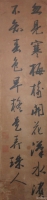 忽見寒梅樹開花漢水濱
不知春色早疑是弄珠人